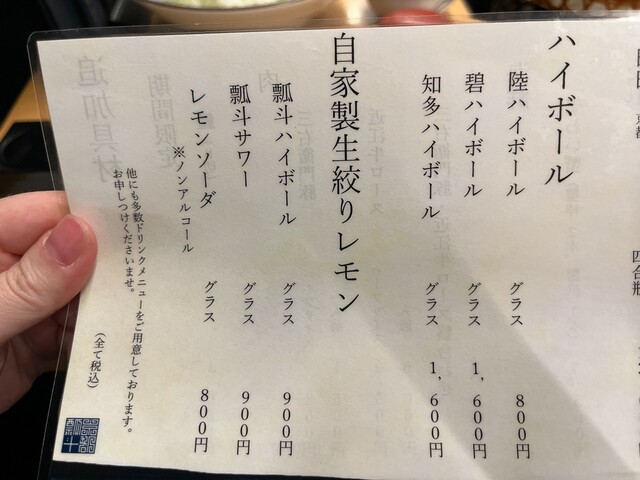 四合瓶
ハイボール
陸ハイボール グラス 800円
碧ハイボール グラス 1,600円
知多ハイボール グラス 1,600円
自家製生絞りレモン
瓢斗ハイボール グラス 900円
瓢斗サワー グラス 900円
レモンソーダ グラス 800円
※ノンアルコール
他にも多数ドリンクメニューをご用意しております。
お申しつけくださいませ。
(全て税込)
追加具材
期間限定
肉
近江牛ロース